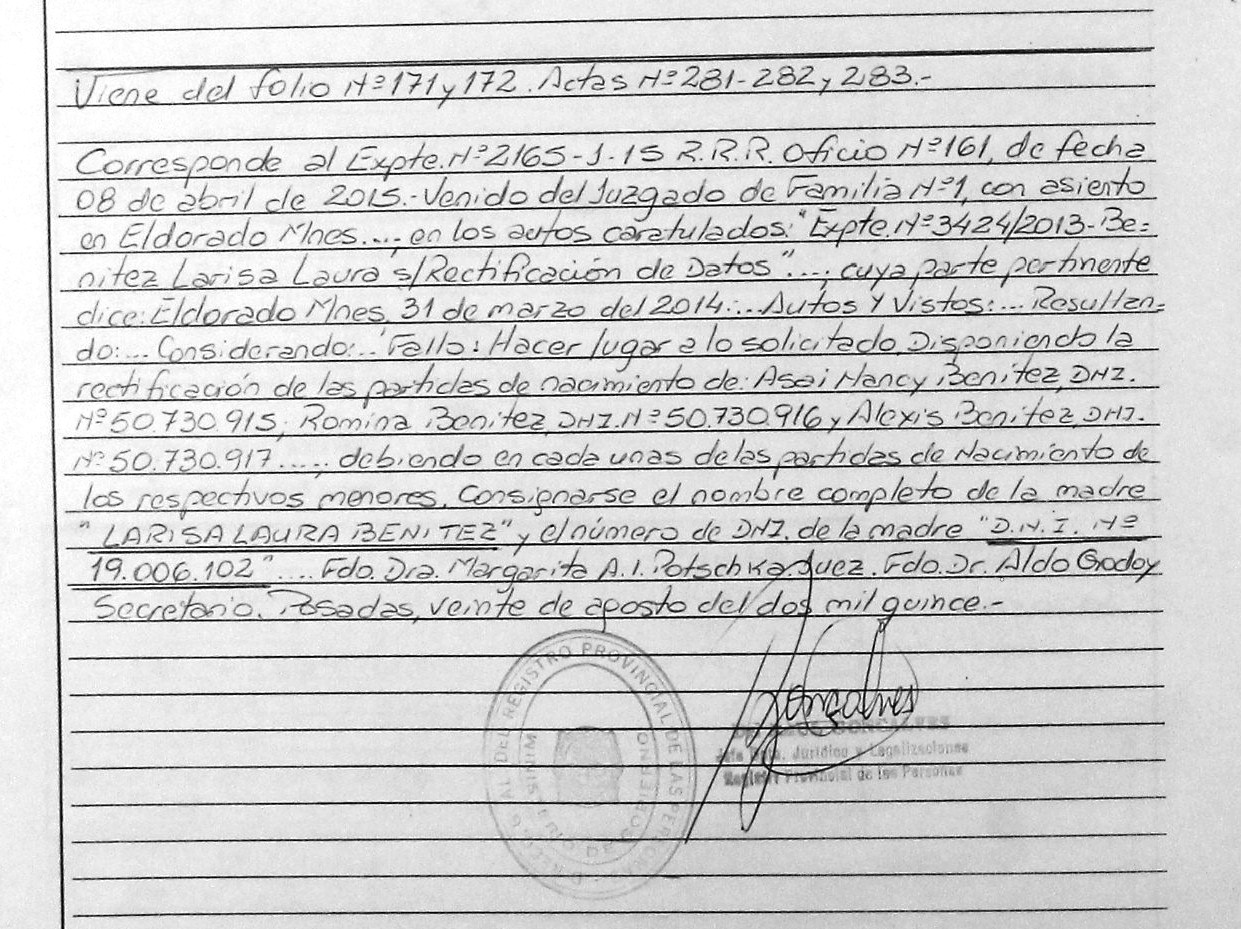 Viene del folio Nº171 y 172. Actas Nº281-282 y 283.-
Corresponde al Expte. Nº2165-J-15 R.R.R. Oficio Nº161, de fecha
08 de abril de 2015.- Venido del Juzgado de Familia Nº1, con asiento
en Eldorado Mnes...., en los autos caratulados: "Expte. Nº3424/2013- Be=
nitez Larisa Laura s/Rectificación de Datos"...., cuya parte pertinente
dice: Eldorado Mnes, 31 de marzo del 2014:... Autos Y Vistos:... Resultan=
do:... Considerando:... Fallo: Hacer lugar a lo solicitado, Disponiendo la
rectificación de las partidas de nacimiento de: Asai Nancy Benitez, DNI.
Nº50.730.915; Romina Benitez, DNI. Nº50.730.916 y Alexis Benitez, DNI.
Nº50.730.917 ....., debiendo en cada unas de las partidas de Nacimiento de
los respectivos menores, Consignarse el nombre completo de la madre
"LARISA LAURA BENITEZ" y el número de DNI. de la madre "D.N.I. Nº
19.006.102".... Fdo. Dra. Margarita A.I. Potschka. Juez. Fdo. Dr. Aldo Godoy
Secretario. Posadas, veinte de agosto del dos mil quince.-
DEL REGISTRO PROVINCIAL DE LAS PERSONAS
MINISTERIO DE GOBIERNO
GONCALVES
Jefe Dpto. Jurídico y Legalizaciones
Registro Provincial de las Personas